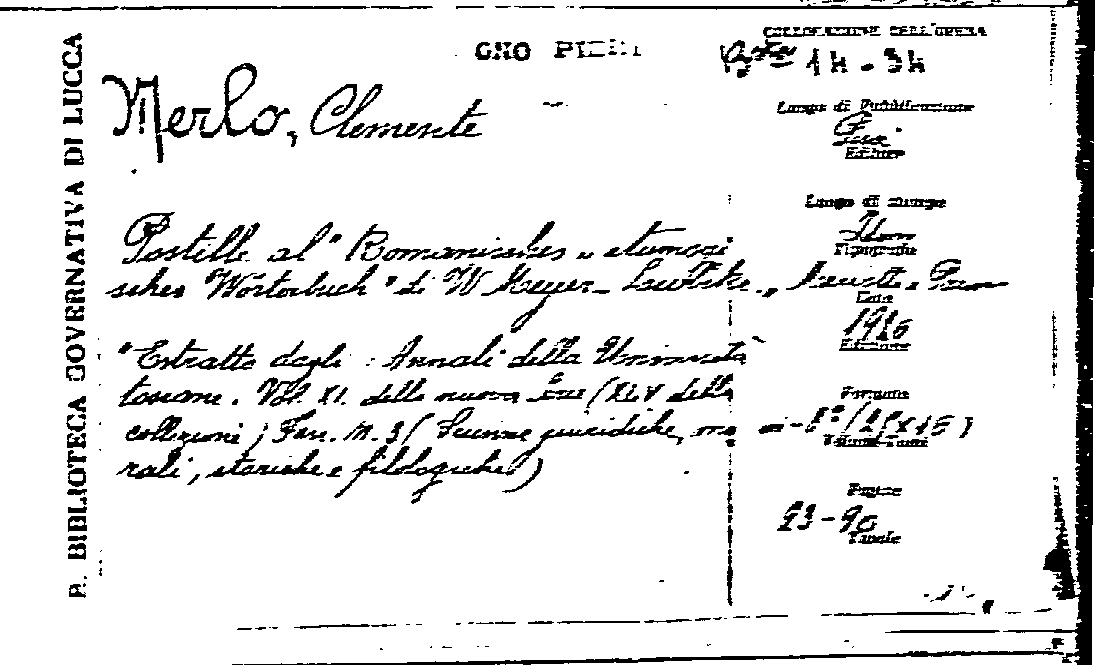 R. BIBLIOTECA GOVERNATIVA DI LUCCA
COLLOCAZIONE DELL'OPERA
Merlo, Clemente
Luogo di Pubblicazione
Editore
Luogo di stampa
Tipografia
Postille al "Romanisches etimogi
sches Wörterbuch" di W Meyer-Luebke
Data
1926
Edizione
"Estratto dagli Annali della Università
toscane. Vol. XI. della nuova serie (XLV della
collezione) Fasc. N. 3 (Scienze giuridiche, mo
rali, storiche e filologiche)
Formato
in-8º
Volumi-Tomi
Pagine
23-90
Tavole